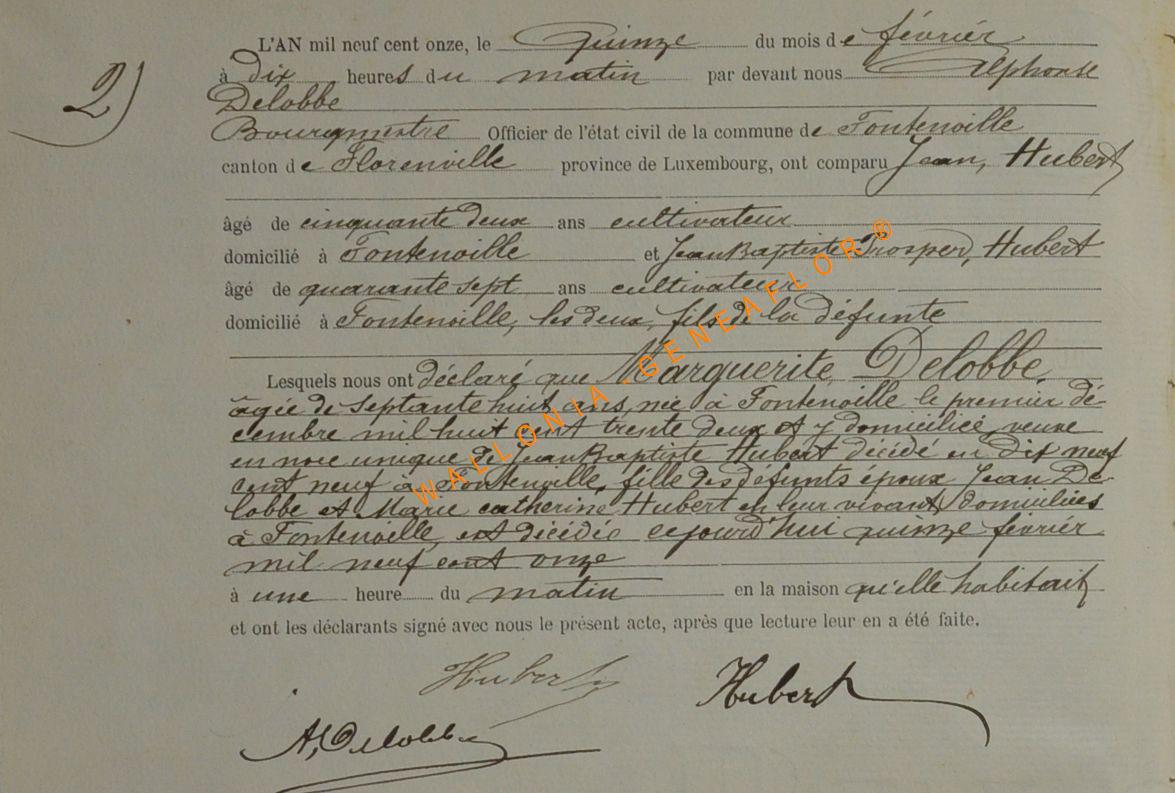 L'AN mil neuf cent onze, le quinze du mois de février
2)
à dix heures du matin par devant nous Alphonse
Delobbe
Bourgmestre Officier de l'état civil de la commune de Fontenoille
canton de Florenville province de Luxembourg, ont comparu Jean, Hubert
âgé de cinquante deux ans cultivateur
domicilié à Fontenoille et Jean Baptiste Prosper, Hubert
âgé de quarante sept ans cultivateur
domicilié à Fontenoille, les deux, fils de la défunte
Lesquels nous ont déclaré que Marguerite, Delobbe,
âgée de septante huit ans, née à Fontenoille le premier dé-
cembre mil huit cent trente deux et y domiciliée, veuve
en noce unique de Jean Baptiste Hubert décédé en dix neuf
cent neuf à Fontenoille, fille des défunts époux Jean De-
lobbe et Marie catherine Hubert en leur vivant domiciliés
à Fontenoille, est décédée cejourd'hui quinze février
mil neuf cent onze
à une heure du matin en la maison qu'elle habitait
et ont les déclarants signé avec nous le présent acte, après que lecture leur en a été faite.
Hubert Hubert
A, Delobbe
WALLONIA - GENEAFLOR ®